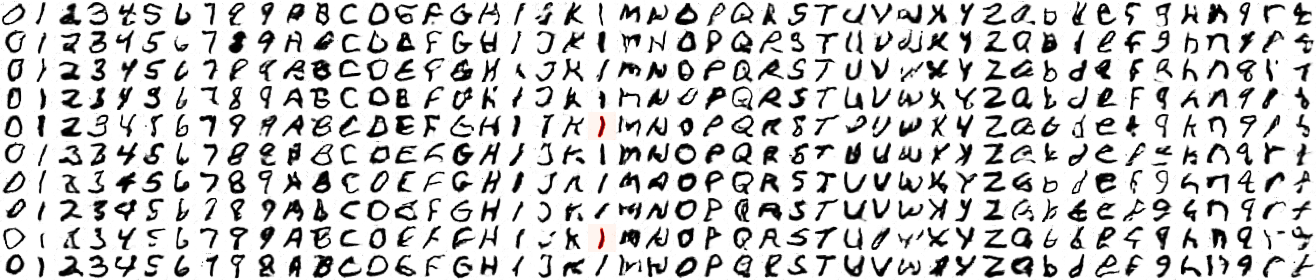 0 1 2 3 4 5 6 7 8 9 A B C D E F G H I J K l M N O P Q R S T U V W X Y Z a b d e f g h n q r t
0 1 2 3 4 5 6 7 8 9 A B C D E F G H I J K l M N O P Q R S T U V W X Y Z a b d e f g h n q r t
0 1 2 3 4 5 6 7 8 9 A B C D E F G H I J K l M N O P Q R S T U V W X Y Z a b d e f g h n q r t
0 1 2 3 4 5 6 7 8 9 A B C D E F G H I J K l M N O P Q R S T U V W X Y Z a b d e f g h n q r t
0 1 2 3 4 5 6 7 8 9 A B C D E F G H I J K l M N O P Q R S T U V W X Y Z a b d e f g h n q r t
0 1 2 3 4 5 6 7 8 9 A B C D E F G H I J K l M N O P Q R S T U V W X Y Z a b d e f g h n q r t
0 1 2 3 4 5 6 7 8 9 A B C D E F G H I J K l M N O P Q R S T U V W X Y Z a b d e f g h n q r t
0 1 2 3 4 5 6 7 8 9 A B C D E F G H I J K l M N O P Q R S T U V W X Y Z a b d e f g h n q r t
0 1 2 3 4 5 6 7 8 9 A B C D E F G H I J K l M N O P Q R S T U V W X Y Z a b d e f g h n q r t
0 1 2 3 4 5 6 7 8 9 A B C D E F G H I J K l M N O P Q R S T U V W X Y Z a b d e f g h n q r t